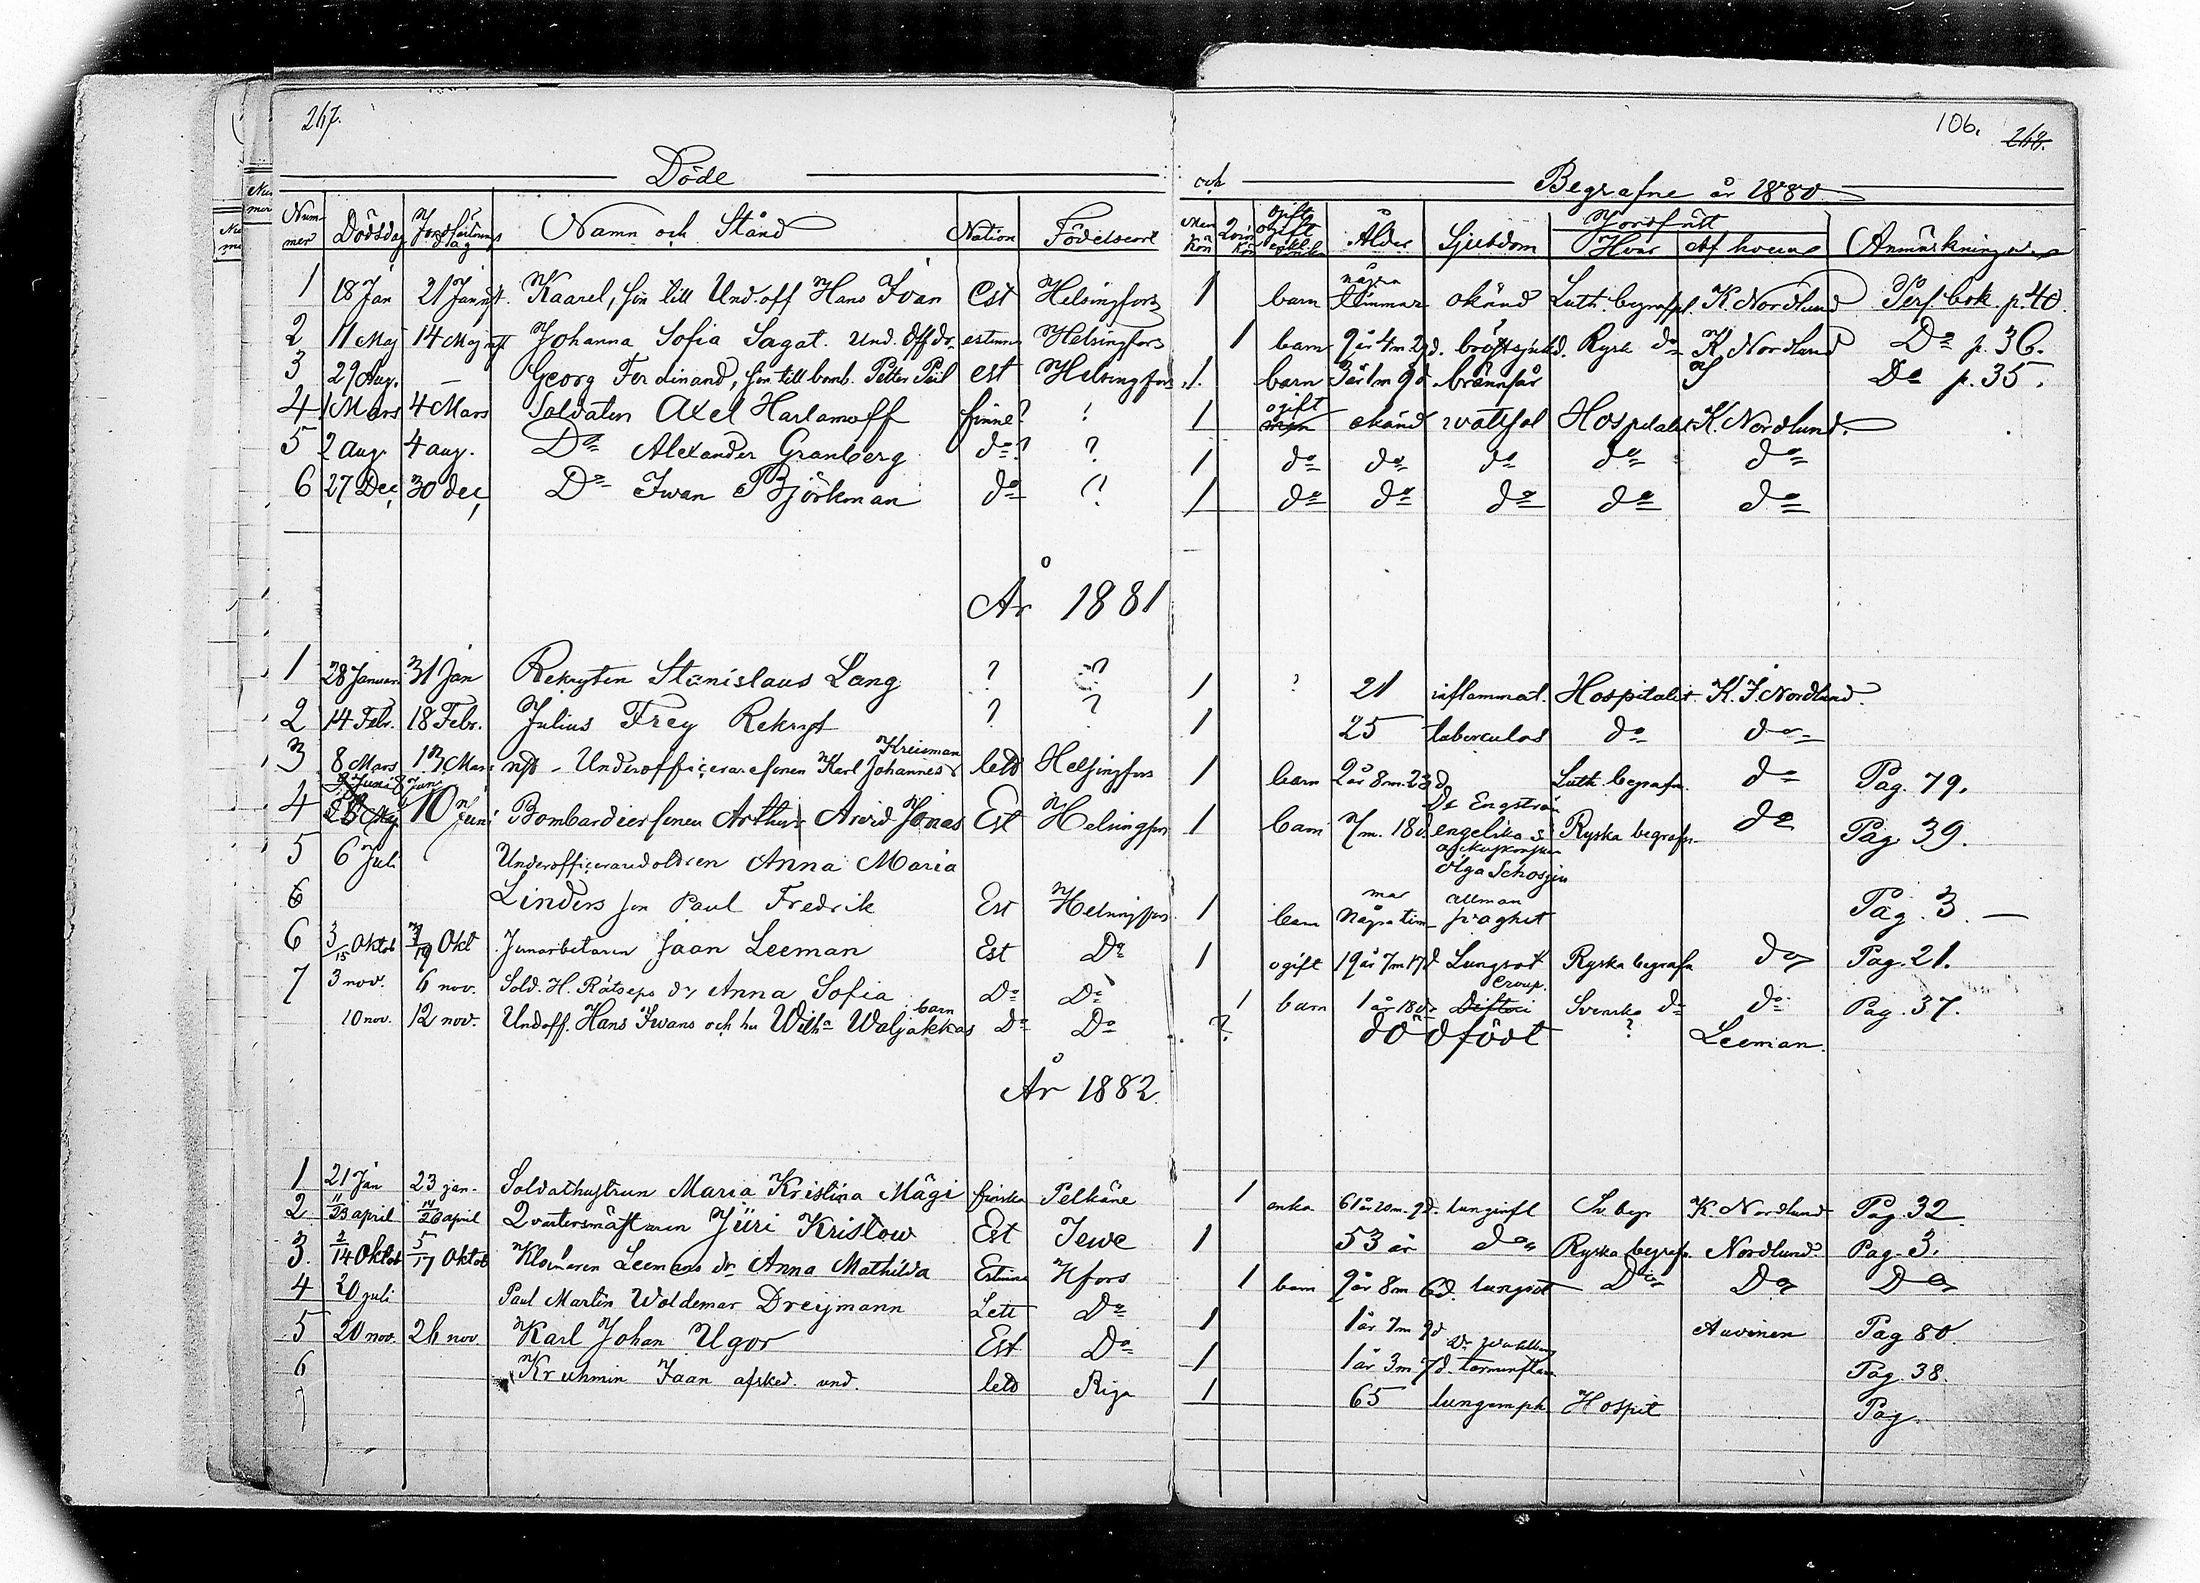 267.
106. 268.
Döde
och Begrafne år 1880
Nummer Dödsdag Jordfästnings dag Namn och Stånd Nation Födelseort Man Kön Qvin Kön Gift Ogift Enkl. Ålder Sjukdom Jordfäst Hvar Af hvem Anmärkningar
1 18 Jan 21 Jan Kaarel, son till Und.off Hans Ivan Est Helsingfors 1 barn några timmar okänd Luth. begrafpl. K. Nordlund Pers. bok. p. 40.
2 11 Maj 14 Maj Johanna Sofia Sagat. Und. Off dr. estinna Helsingfors 1 barn 9 år 4 m 2 d. bröstsjukd. Rysk do K. Nordlund Do p. 36.
3 29 Aug. — Georg Ferdinand, son till bomb. Petter Piil est Helsingfors 1. barn 3 år 1 m 9 d brännsår Do p. 35.
4 1 Mars 4 Mars Soldaten Axel Harlamoff finne? ? 1 ogift okänd vattsot Hospitalet K. Nordlund.
5 2 aug. 4 aug. Do Alexander Granberg do? ? 1 do do do do do
6 27 Dec. 30 dec. Do Iwan Björkman do ? 1 do do do do do
År 1881
1 28 Januari 31 Jan Rekryten Stanislaus Lang ? ? 1 ? 21 inflammat. Hospitalet K. J. Nordlund.
2 14 Febr. 18 Febr. Julius Frey Rekryt ? ? 1 25 tuberculos do do
3 8 Mars 13 Mars Underofficeraresonen Karl Johannes Kreisman lett Helsingfors 1 barn 2 år 8 m. 23 d Luth. begrafn. do Pag. 79.
4 10 Juni Bombardiersonen Arthur Arvid Jonas Est Helsingfors 1 barn 7 m. 18 d. Dr Engström engelska s. Ryska begrafn. do Pag 39.
5 6 Juli Underofficersdottren Anna Maria Olga Schosgin
6 Linders son Paul Fredrik Est Helsingfors 1 barn Några tim allmän svaghet Pag. 3. —
6 3/15 Oktob 7/19 Okt Jernarbetaren Jaan Leeman Est Do 1 ogift 19 år 7 m 17 d Lungsot Ryska begrafn do Pag. 21.
7 3 nov. 6 nov. Sold. H. Rätseps dr Anna Sofia Do Do 1 barn 1 år 18 d. Croup. Svenska do do Pag. 37.
10 nov. 12 nov. Undoff. Hans Iwans och hu Wilha Waljakkas barn Do Do ? dödfödt ? Leeman.
År 1882.
1 21 Jan 23 jan. Soldathustrun Maria Kristina Mägi finska Pelkäne 1 enka 61 år 10 m. 9 d. lunginfl Sv. begr K. Nordlund Pag. 32.
2 11/23 april 14/26 april Qvartersmästaren Jüri Kristow Est Jewe 1 53 år do Ryska begrafn. Nordlund. Pag. 3.
3. 2/14 Oktob 5/17 Oktob Leemans dr Anna Mathilda Estinna Hfors 1 barn 9 år 8 m 6 d. lungsot Do Do Do
4 20 juli Paul Martin Woldemar Dreijmann Lett Do 1 1 år 7 m 9 d Auvinen Pag 80.
5 20 nov. 26 nov. Karl Johan Ugor Est Do 1 1 år 3 m. 7 d. Pag. 38.
6 Kruhmin Jaan afsked. und. lett Riga 1 65 lungemph. Hospit Pag.
7